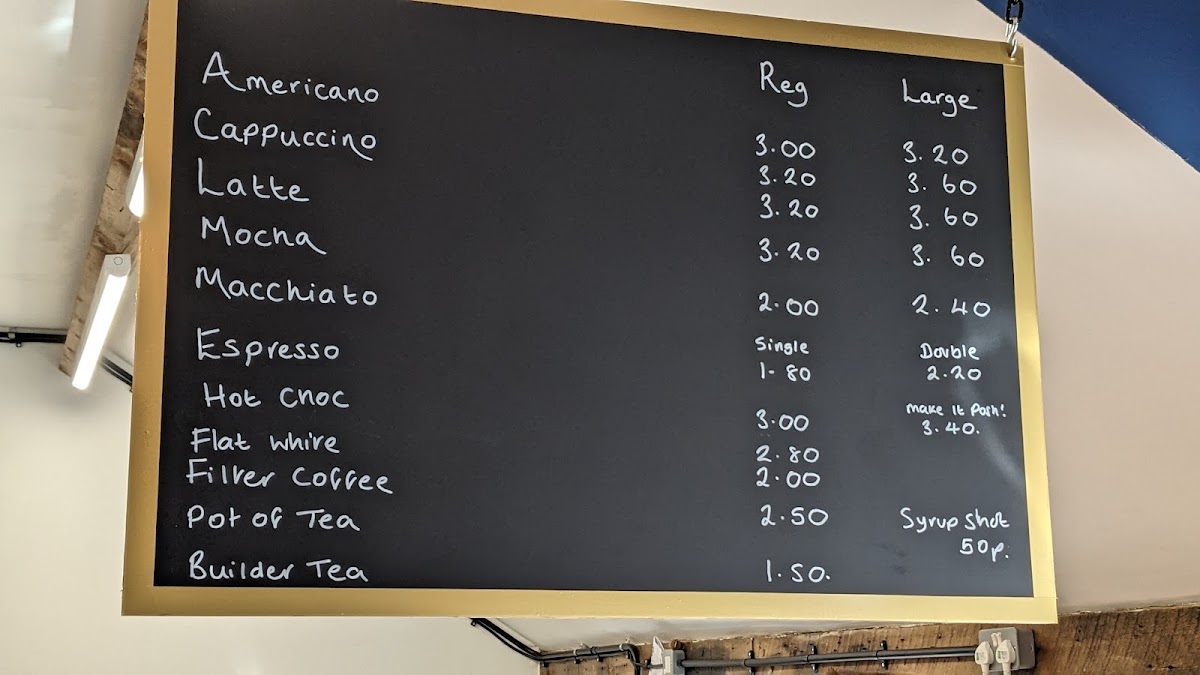 Americano Reg Large
Cappuccino 3.00 3.20
Latte 3.20 3.60
Mocha 3.20 3.60
3.20 3.60
Macchiato 2.00 2.40
Espresso Single Double
1-80 2.20
Hot Choc make it Posh!
3.00 3.40.
Flat white 2.80
Filter Coffee 2.00
Pot of Tea 2.50 Syrup shot
50p.
Builder Tea 1.50.